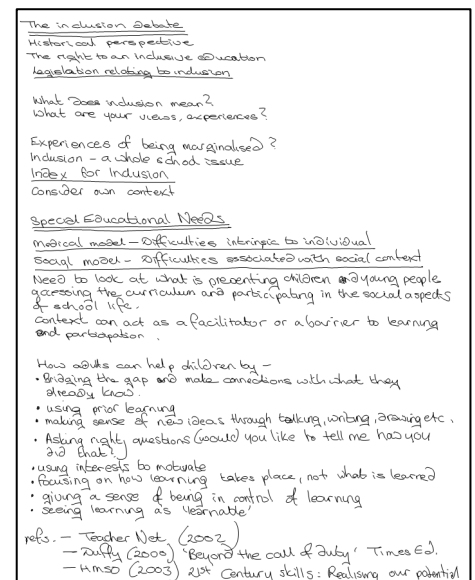 The inclusion Debate
Historical perspective
The right to an Inclusive education
Legislation relating to inclusion
What does inclusion mean?
What are your views, experiences?
Experiences of being marginalised?
Inclusion - a whole school issue
Index for Inclusion
Consider own context
Special Educational Needs
medical model - Difficulties intrinsic to individual
Social model - Difficulties associated with social context
Need to look at what is presenting children and young people
accessing the curriculum and participating in the social aspects
of school life.
Context can act as a facilitator or a barrier to learning
and participation.
How adults can help children by -
• Bridging the gap and make connections with what they
already know.
• using prior learning
• making sense of new ideas through talking, writing, drawing etc.
• Asking right questions (would you like to tell me how you
did that?)
• using interests to motivate
• focusing on how learning takes place, not what is learned
• giving a sense of being in control of learning
• seeing learning as 'learnable'
refs. - Teacher Net (2002)
- Duffy (2000) 'Beyond the call of duty' Times Ed.
- HMSO (2003) 21st Century skills: Realising our potential